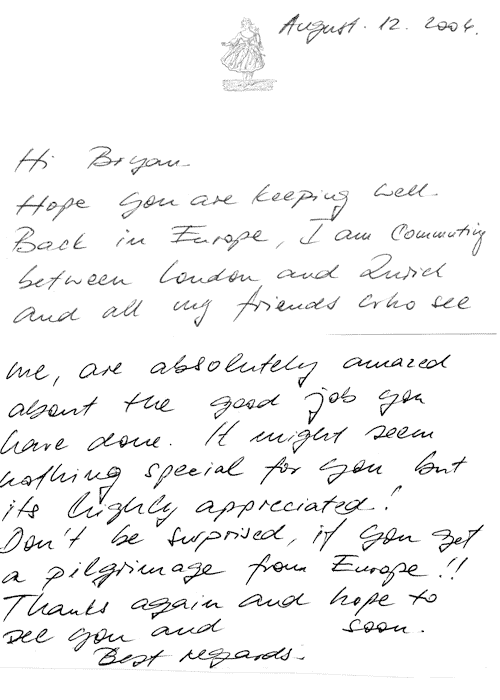 August. 12. 2004.
Hi Bryan
Hope you are keeping well.
Back in Europe, I am commuting
between London and Zurich
and all my friends who see
me, are absolutely amazed
about the good job you
have done. It might seem
nothing special for you but
its highly appreciated!
Don't be surprised, if you get
a pilgrimage from Europe!!
Thanks again and hope to
see you and soon.
Best regards.